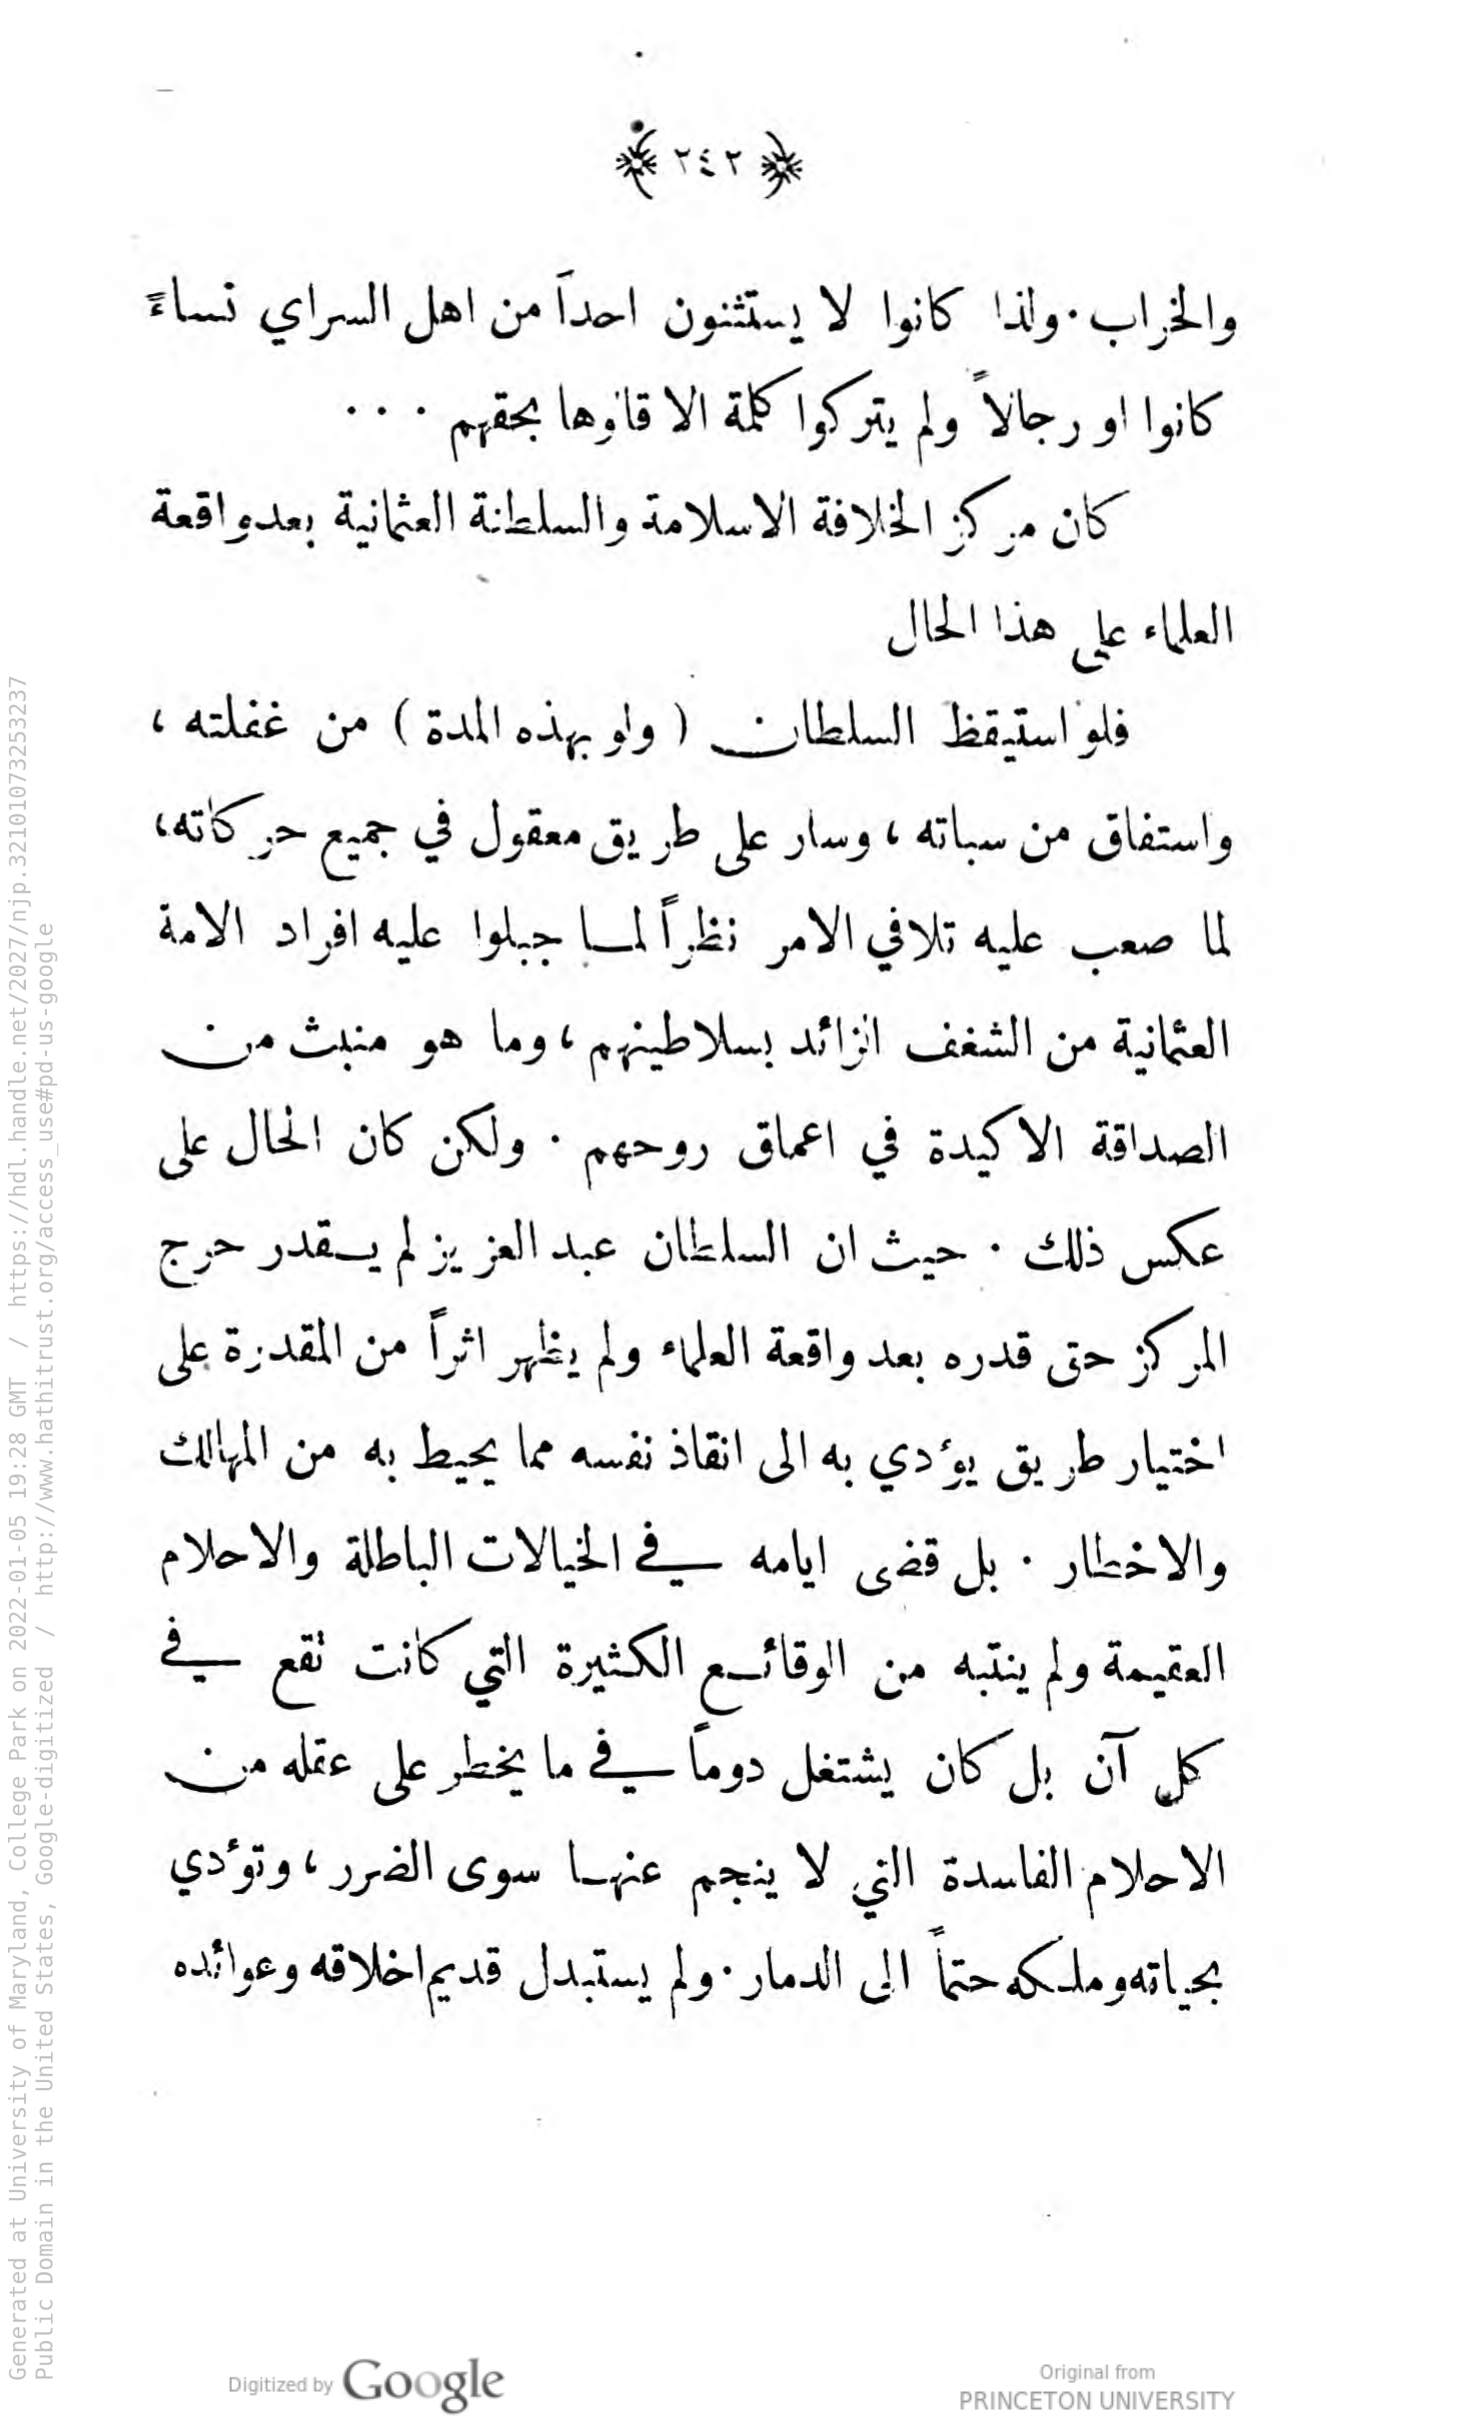 ٢٤٢
والخراب . ولذا كانوا لا يستثنون احداً من اهل السراي نساءً
كانوا او رجالاً ولم يتركوا كلمة الا قالوها بحقهم . . .
كان مركز الخلافة الاسلامة والسلطنة العثمانية بعد واقعة
العلماء على هذا الحال
فلو استيقظ السلطان ( ولو بهذه المدة ) من غفلته ،
واستفاق من سباته ، وسار على طريق معقول في جميع حركاته،
لما صعب عليه تلافي الامر نظراً لما جبلوا عليه افراد الامة
العثمانية من الشغف الزائد بسلاطينهم ، وما هو منبث من
الصداقة الاكيدة في اعماق روحهم . ولكن كان الحال على
عكس ذلك . حيث ان السلطان عبد العزيز لم يقدر حرج
المركز حتى قدره بعد واقعة العلماء ولم يظهر اثراً من المقدرة على
اختيار طريق يؤدي به الى انقاذ نفسه مما يحيط به من المهالك
والاخطار . بل قضى ايامه في الخيالات الباطلة والاحلام
العقيمة ولم ينتبه من الوقائع الكثيرة التي كانت تقع في
كل آن بل كان يشتغل دوماً في ما يخطر على عقله من
الاحلام الفاسدة التي لا ينجم عنها سوى الضرر ، وتؤدي
بحياته وملكه حتماً الى الدمار . ولم يستبدل قديم اخلاقه وعوائده
Generated at University of Maryland, College Park on 2022-01-05 19:28 GMT / https://hdl.handle.net/2027/njp.32101073253237
Public Domain in the United States, Google-digitized / http://www.hathitrust.org/access_use#pd-us-google
Digitized by Google
Original from
PRINCETON UNIVERSITY